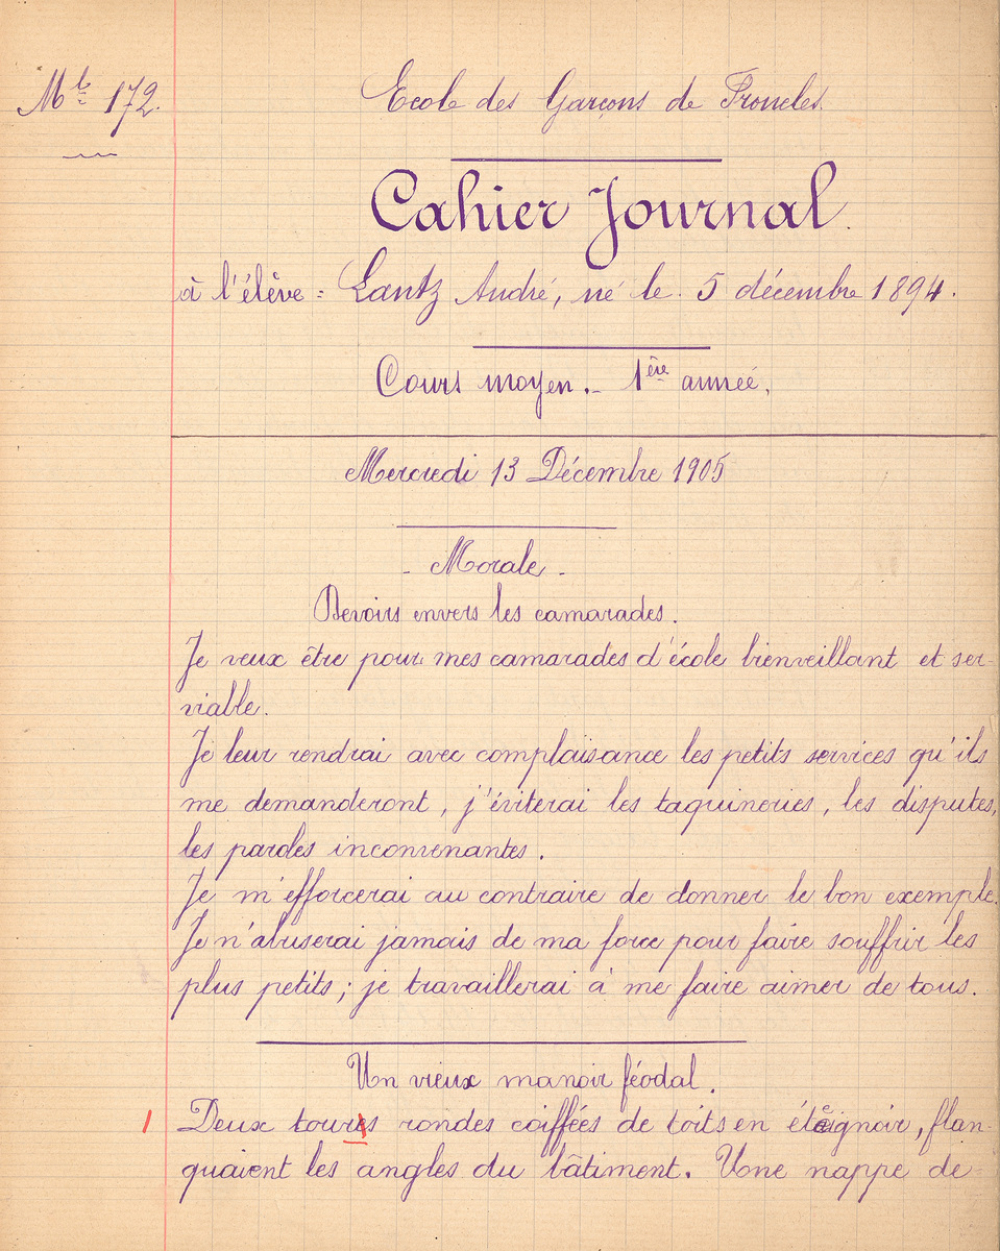 Mle 172.
Ecole des Garçons de Froncles
Cahier Journal.
à l'élève : Lantz André, né le 5 décembre 1894.
Cours moyen. - 1ère année.
Mercredi 13 Décembre 1905
- Morale -
Devoirs envers les camarades.
Je veux être pour mes camarades d'école bienveillant et ser-
viable.
Je leur rendrai avec complaisance les petits services qu'ils
me demanderont, j'éviterai les taquineries, les disputes,
les paroles inconvenantes.
Je m'efforcerai au contraire de donner le bon exemple.
Je n'abuserai jamais de ma force pour faire souffrir les
plus petits ; je travaillerai à me faire aimer de tous.
Un vieux manoir féodal.
1 Deux toures rondes coiffées de toits en éteignoir, flan-
quaient les angles du bâtiment. Une nappe de